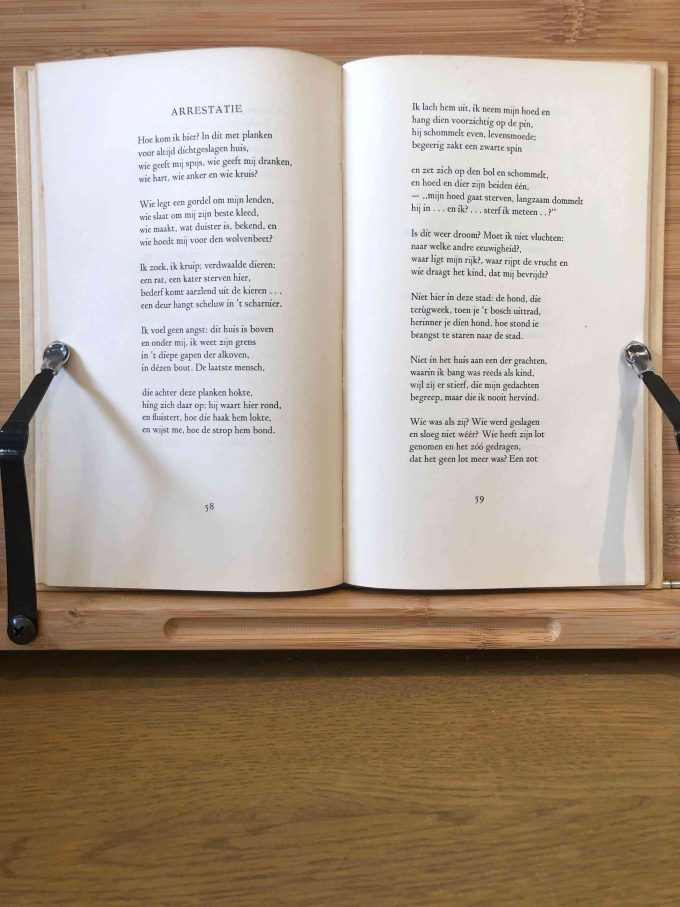 ARRESTATIE
Hoe kom ik hier? In dit met planken
voor altijd dichtgeslagen huis,
wie geeft mij spijs, wie geeft mij dranken,
wie hart, wie anker en wie kruis?
Wie legt een gordel om mijn lenden,
wie slaat om mij zijn beste kleed,
wie maakt, wat duister is, bekend, en
wie hoedt mij voor den wolvenbeet?
Ik zoek, ik kruip; verdwaalde dieren:
een rat, een kater sterven hier,
bederf komt aarzlend uit de kieren . . .
een deur hangt scheluw in 't scharnier.
Ik voel geen angst: dit huis is boven
en onder mij, ik weet zijn grens
in 't diepe gapen der alkoven,
in dézen bout. De laatste mensch,
die achter deze planken hokte,
hing zich daar op; hij waart hier rond,
en fluistert, hoe die haak hem lokte,
en wijst me, hoe de strop hem bond.
58
Ik lach hem uit, ik neem mijn hoed en
hang dien voorzichtig op de pin,
hij schommelt even, levensmoede;
begeerig zakt een zwarte spin
en zet zich op den bol en schommelt,
en hoed en dier zijn beiden één,
— „mijn hoed gaat sterven, langzaam dommelt
hij in . . . en ík? . . . sterf ík meteen . . ?"
Is dit weer droom? Moet ik niet vluchten:
naar welke andre eeuwigheid?,
waar ligt mijn rijk?, waar rijpt de vrucht en
wie draagt het kind, dat mij bevrijdt?
Niet hier in deze stad: de hond, die
terùgweek, toen je 't bosch uittrad,
herinner je dien hond, hoe stond ie
beangst te staren naar de stad.
Niet in het huis aan een der grachten,
waarin ik bang was reeds als kind,
wijl zij er stierf, die mijn gedachten
begreep, maar die ik nooit hervind.
Wie was als zij? Wie werd geslagen
en sloeg niet wéér? Wie heeft zijn lot
genomen en het zóó gedragen,
dat het geen lot meer was? Een zot
59